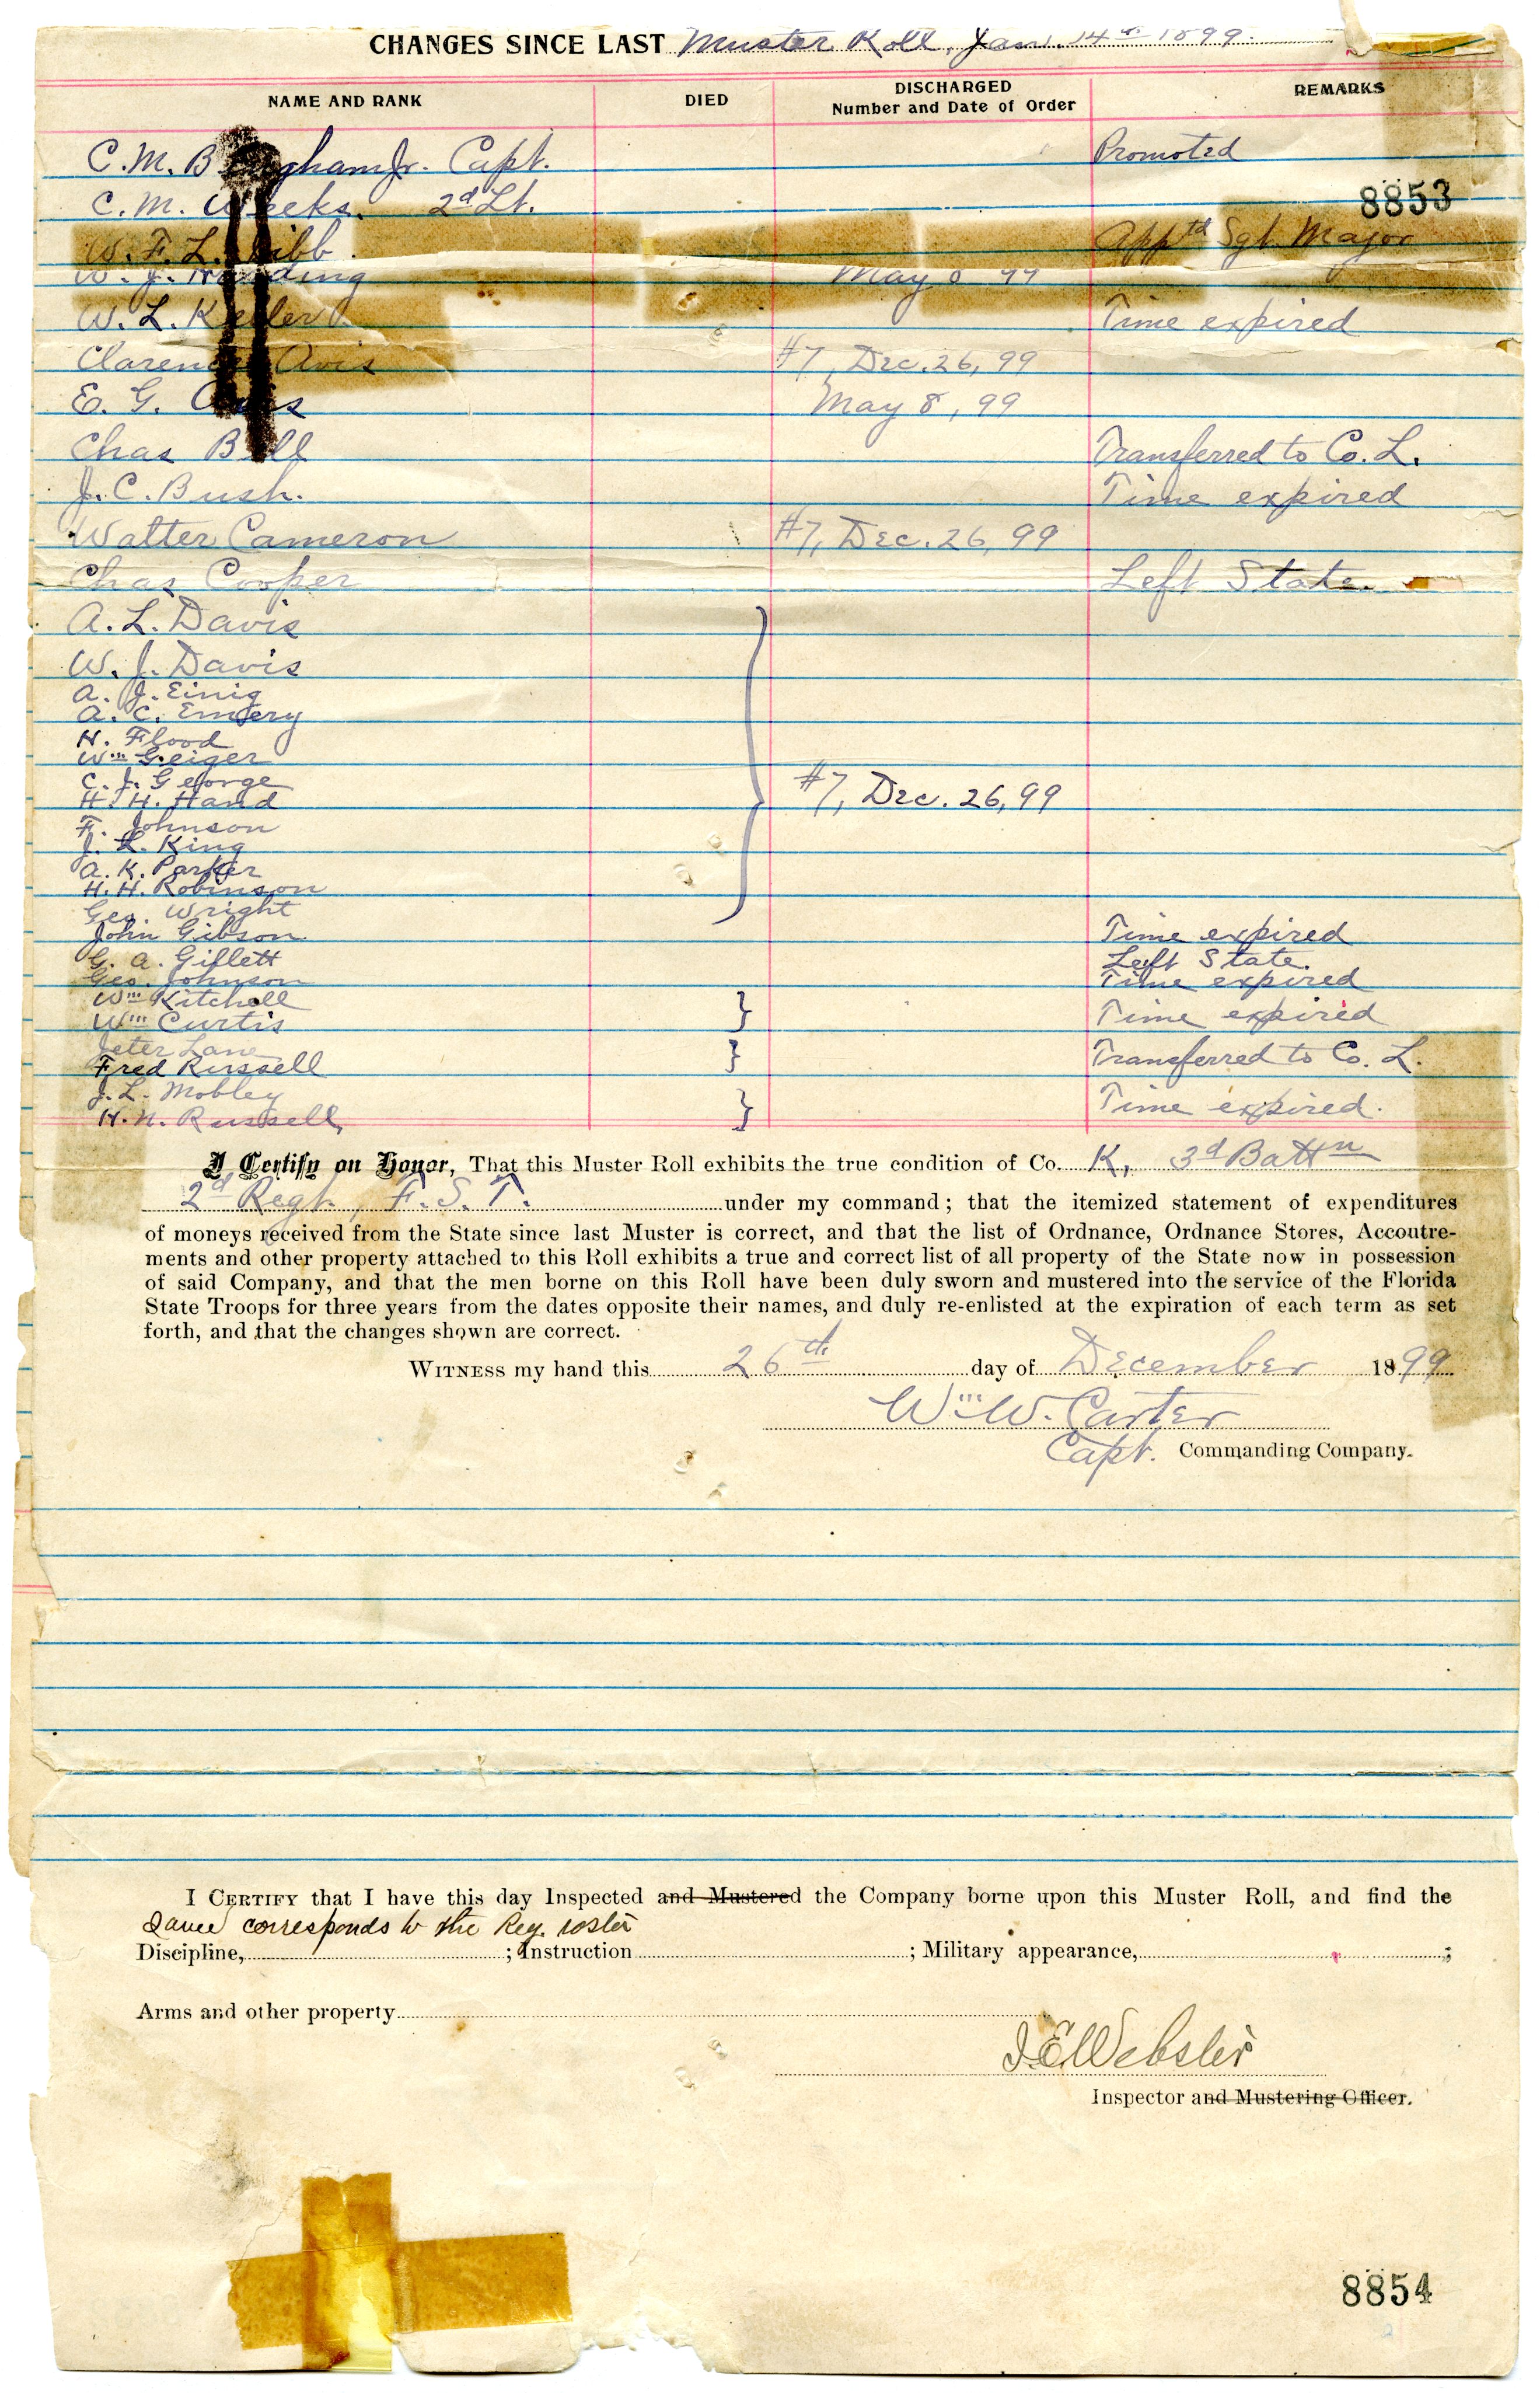 CHANGES SINCE LAST Muster Roll, Jan. 14th 1899.
NAME AND RANK DIED DISCHARGED Number and Date of Order REMARKS
C. M. B ghamJr. Capt. Promoted
C. M. Weeks. 2d Lt.
8853
W. F. L. ibb App'td Sgt Major
W. J. ding May 8 99
W. L. Keller Time expired
Clarence Avis #7, Dec. 26, 99
E. G. May 8, 99
Chas Bell Transferred to Co. L.
J. C. Bush. Time expired
Walter Cameron #7, Dec. 26, 99
Chas Cooper Left State.
A. L. Davis
W. J. Davis
A. J. Einig
A. C. Emery
H. Flood
Wm Geiger
C. J. George
H. H. Hand #7, Dec. 26, 99
F. Johnson
J. L. King
A. K. Parker
H. H. Robinson
Geo. Wright
John Gibson Time expired
G. A. Gillett Left State.
Geo. Johnson Time expired
Wm Kitchell
Wm Curtis } Time expired
Jeter Lane
Fred Russell } Transferred to Co. L.
J. L. Mobley
H. N. Russell, } Time expired.
I Certify on Honor, That this Muster Roll exhibits the true condition of Co. K, 3d Battn
2d Regt., F. S. T. under my command; that the itemized statement of expenditures
of moneys received from the State since last Muster is correct, and that the list of Ordnance, Ordnance Stores, Accoutre-
ments and other property attached to this Roll exhibits a true and correct list of all property of the State now in possession
of said Company, and that the men borne on this Roll have been duly sworn and mustered into the service of the Florida
State Troops for three years from the dates opposite their names, and duly re-enlisted at the expiration of each term as set
forth, and that the changes shown are correct.
WITNESS my hand this 26th day of December 1899
Wm W. Carter
Capt. Commanding Company.
I CERTIFY that I have this day Inspected and Mustered the Company borne upon this Muster Roll, and find the
same corresponds to the Reg. roster
Discipline, ; Instruction ; Military appearance, ;
Arms and other property
J. E. Webster
Inspector and Mustering Officer.
8854